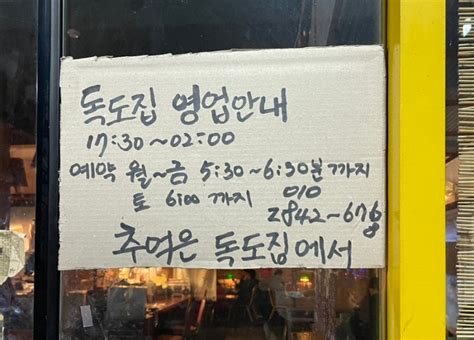 독도집 영업안내
17:30~02:00
예약 월~금 5:30~6:30분 까지
토 6:00 까지 010
추억은 독도집에서